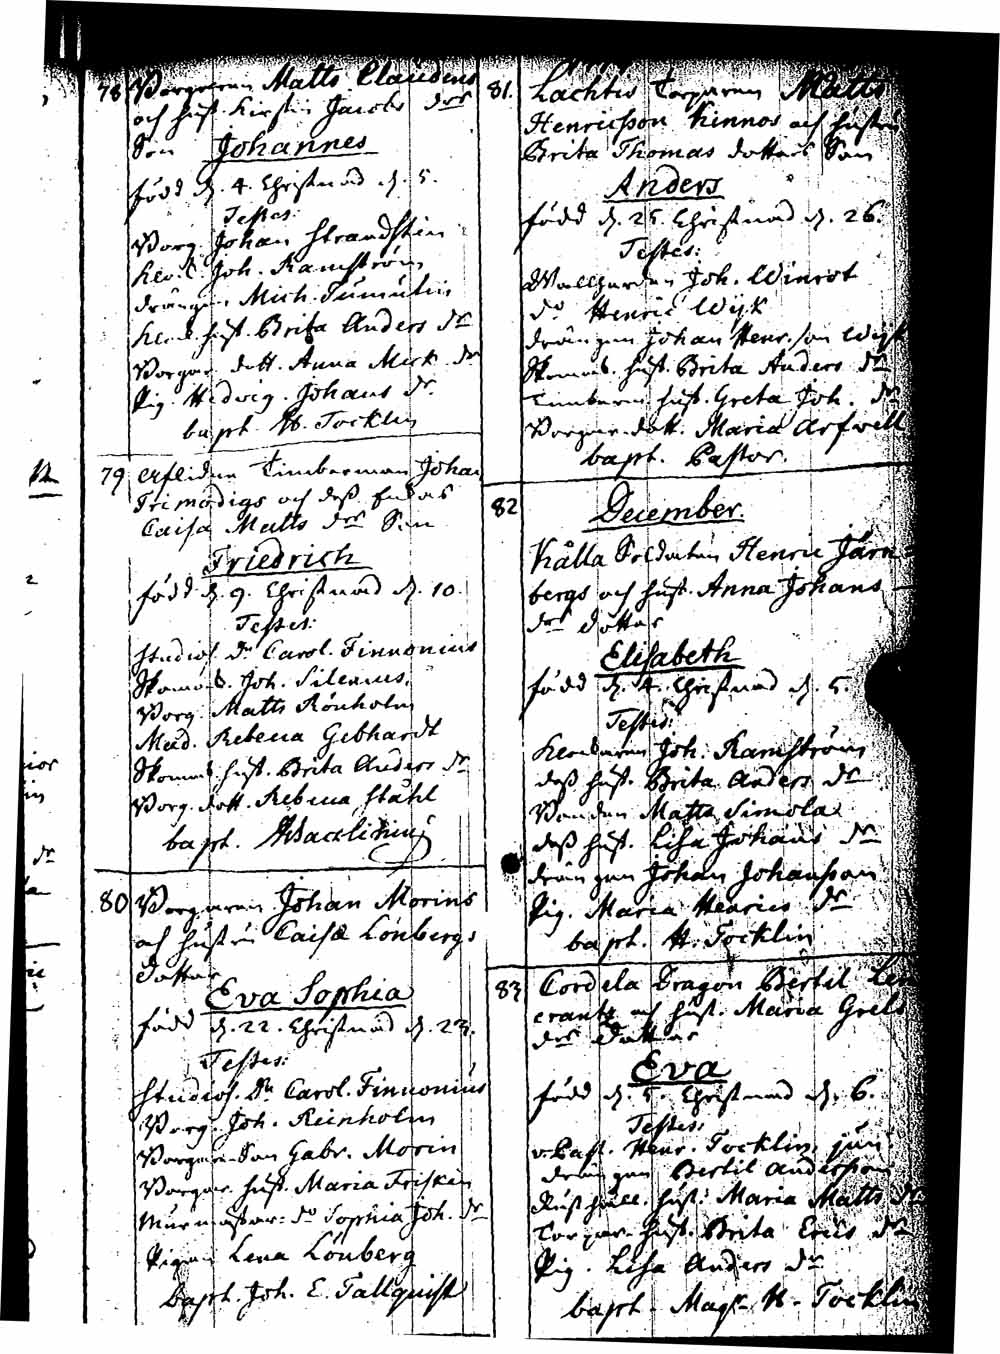 78 Borgaren Matts Claudens
och hust. Kirstin Jacobs drs
Son Johannes
född d. 4. Christnad d. 5.
Testes:
Borg. Johan Strandstén
Joh. Ramström
drängen Mich. Tumulin
hust. Brita Anders dr
Borgar dott. Anna Mick. dr
Pig. Hedvig Johans dr
bapt. H. Tocklin
79 Aflidne Timberman Johan
Trimodigs och dess Enkas
Caisa Matts drs Son
Friedrich
född d. 9. Christnad d. 10.
Testes:
Studios. Dn Carol. Finnonius
Joh. Silenius.
Borg. Matts Rönholm
Mad. Rebecca Gebhardt
hust. Brita Anders dr
Borg. dott. Rebecca Ståhl
bapt.
80 Borgaren Johan Morins
och hustru Caisa Lönbergs
Dotter
Eva Sophia
född d. 22. Christnad d. 23.
Testes:
Studios. Dn Carol. Finnonius
Borg. Joh. Reinholm
Borgare-Son Gabr. Morin
Borgar. hust. Maria Friskin
Murmästar. do Sophia Joh. dr
Pigan Lena Lönberg
bapt. Joh. E. Tallquist
81. Lachtis Torparen Matts
Henricsson Kinnos och hustru
Brita Thomas dotters Son
Anders
född d. 25. Christnad d. 26.
Testes:
Joh. Winrot
do Henric Wijk
drängen Johan Henr. son Wijk
hust. Brita Anders dr
hust. Greta Joh. dr
Borgar. dott. Maria Arfwell
bapt. Pastor.
82 December.
Kålla Soldaten Henric Järn=
bergs och hust. Anna Johans
drs dotter
Elisabeth
född d. 4. Christnad d. 5.
Testes:
Joh. Ramström
dess hust. Brita Anders dr
Bonden Matts Simola
dess hust. Lisa Johans dr
drängen Johan Johansson
Pig. Maria Henrics dr
bapt. H. Tocklin
83 Cordela Dragon Bertil
och hust. Maria Grels
drs Dotter
Eva
född d. 5. Christnad d. 6.
Testes:
v. Past. Henr. Tocklin jun
drängen Bertil Andersson
hust. Maria Matts dr
Torpar. hust. Brita Erics dr
Pig. Lisa Anders dr
bapt. Mag. H. Tocklin